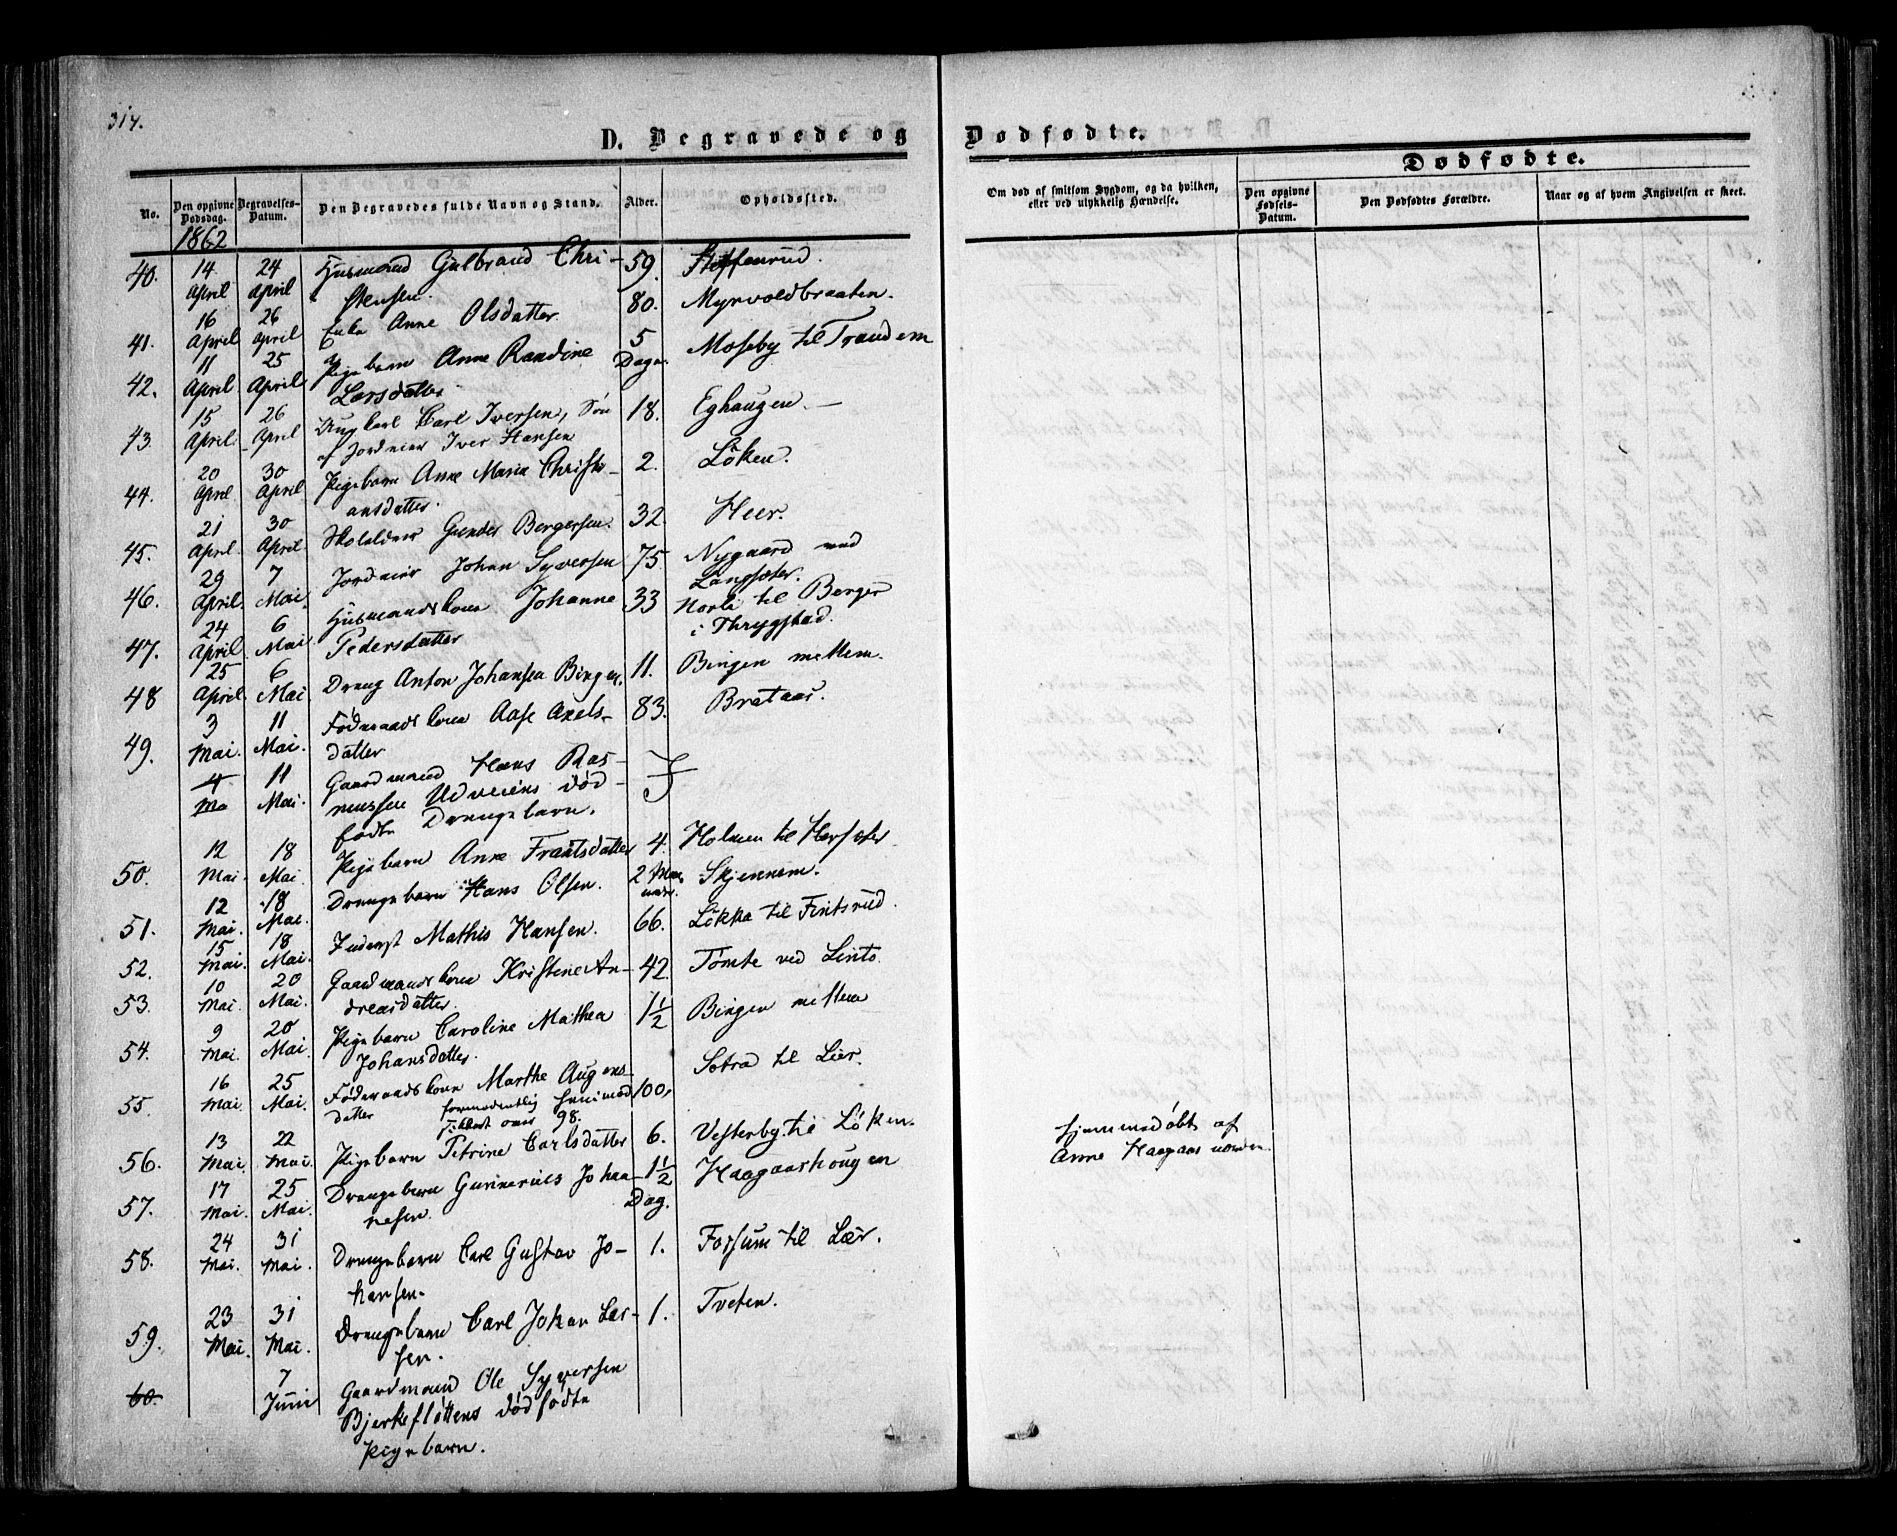 314.
D. Begravede og Dødfødte.
No.
Den opgivne Dødsdag.
Begravelses-Datum.
Den Begravedes fulde Navn og Stand.
Alder.
Opholdssted.
Om død af smitsom Sygdom, og da hvilken, eller ved ulykkelig Hændelse.
Dødfødte.
Den opgivne Fødsels-Datum.
Den Dødfødtes Forældre.
Naar og af hvem Angivelsen er skeet.
1862
40. 14 April 24 April Husmand Gulbrand Chri- 59.
stensen.
41. 16 April 26 April Enke Anne Olsdatter. 80. Myrvoldbraaten.
42. 11 April 25 April Pigebarn Anne Randine 5 Dage. Moseby til Trandem
Larsdatter
43. 15 April 26 April Ungkarl Carl Iversen, Søn 18. Eghaugen.
af Jordeier Iver Hansen
44. 20 April 30 April Pigebarn Anne Maria Christi- 2. Löken.
ansdatter.
45. 21 April 30 April Gunder Bergersen. 32. Heer.
46. 29 April 7 Mai Jordeier Johan Syversen 75. Nygaard ved
Langsæter.
47. 24 April 6 Mai Husmandskone Johanne 33 Norli til Berger
Pedersdatter i Thrygstad.
48 25 April 6 Mai Dreng Anton Johansen Bingen. 11. Bingen mellem.
49. 3 Mai. 11 Mai. Föderaadskone Aase Axels- 83. Brataas.
datter
4 Ma 11 Mai. Gaardmand Hans Ras-
mussen Udveiens död-
fødte Drengebarn.
50. 12 Mai. 18 Mai. Pigebarn Anne Frantsdatter 4. Holmen til Hersæter
51. 12 Mai. 18 Mai. Drengebarn Hans Olsen. 2 Maaneder. Skjennem.
52. 15 Mai. 18 Mai. Inderst Mathis Hansen. 66. Lökka til Fintsrud.
53. 10 Mai. 20 Mai. Gaardmandskone Kristine An- 42. Tömte ved Linto
dreasdatter.
54. 9 Mai. 20 Mai. Pigebarn Caroline Mathea 1½ Bingen mellem
Johansdatter.
55. 16 Mai 25 Mai. Föderaadskone Marthe Augens- 100, Sotra til Lier.
datter formodentlig
98.
56. 13 Mai. 22 Mai. Pigebarn Petrine Carlsdatter 6. Vesterby til Löken.
57. 17 Mai. 25 Mai. Drengebarn Gunnerius Johan- 1½ Dag. Haagaashougen
nesen. hjemmedøbt af
Anne Haagaas
58. 24 Mai. 31 Mai. Drengebarn Carl Gustav Jo- 1. Forsum til Lær.
hansen.
59. 23 Mai. 31 Mai. Drengebarn Carl Johan Lar- 1. Tveten.
sen.
60. 7 Juni Gaardmand Ole Syversen
Bjerkefløttens dødfødte
Pigebarn.